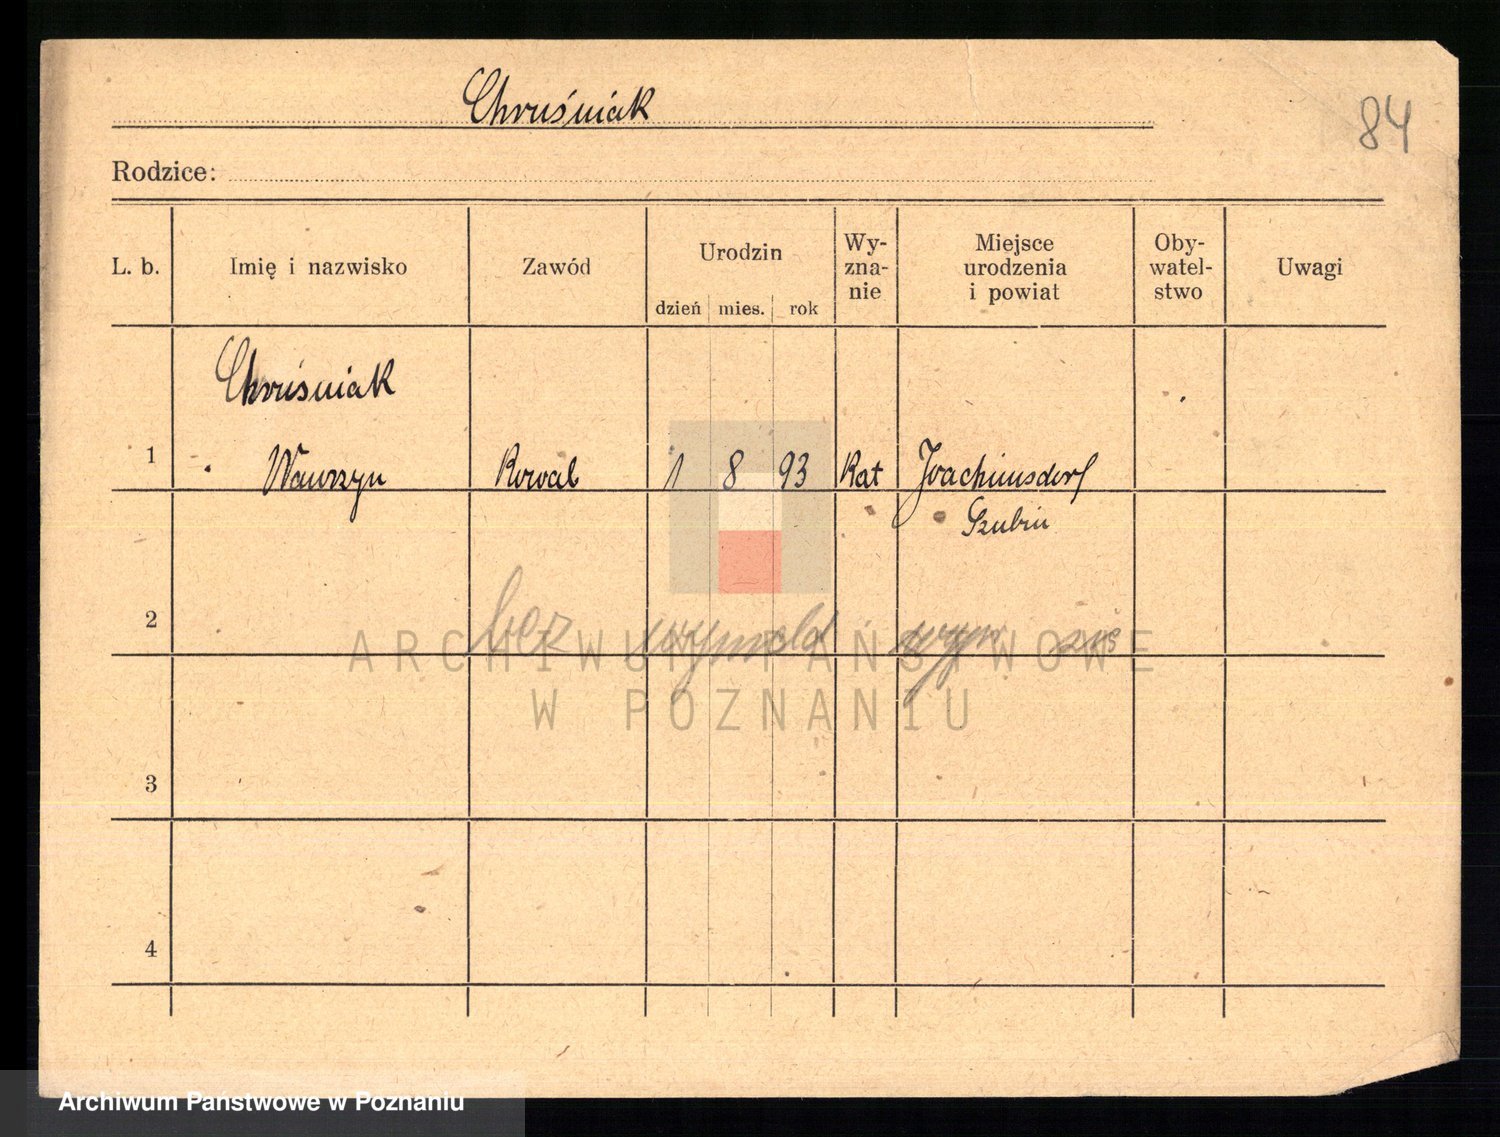 Chruśniak
84
Rodzice:
L. b. Imię i nazwisko Zawód Urodzin dzień mies. rok Wy-zna-nie Miejsce urodzenia i powiat Oby-watel-stwo Uwagi
Chruśniak
1 Wawrzyn Kowal 1 8 93 Kat Joachimsdorf
Szubin
2 bez wymeld
ARCHIWUM PAŃSTWOWE
W POZNANIU
3
4
Archiwum Państwowe w Poznaniu